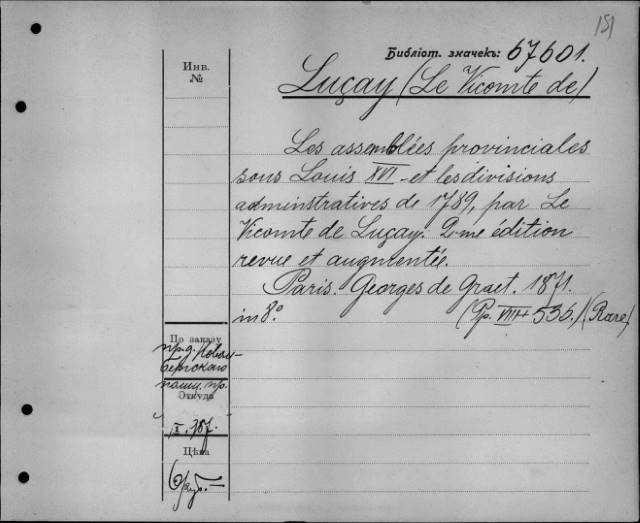 151
Библіот. значекъ: 67601.
Инв.
№
Luçay (Le Vicomte de)
Les assemblées provinciales
sous Louis XVI et les divisions
adminstratives de 1789, par Le
Vicomte de Luçay. 2me édition
revue et augmentée.
Paris. Georges de Graet. 1871.
in 8.° (Pp. VIII + 536.) (Rare)
По заказу
пр. д. Новом-
бергскаго
Откуда
Цѣна
6 руб. —